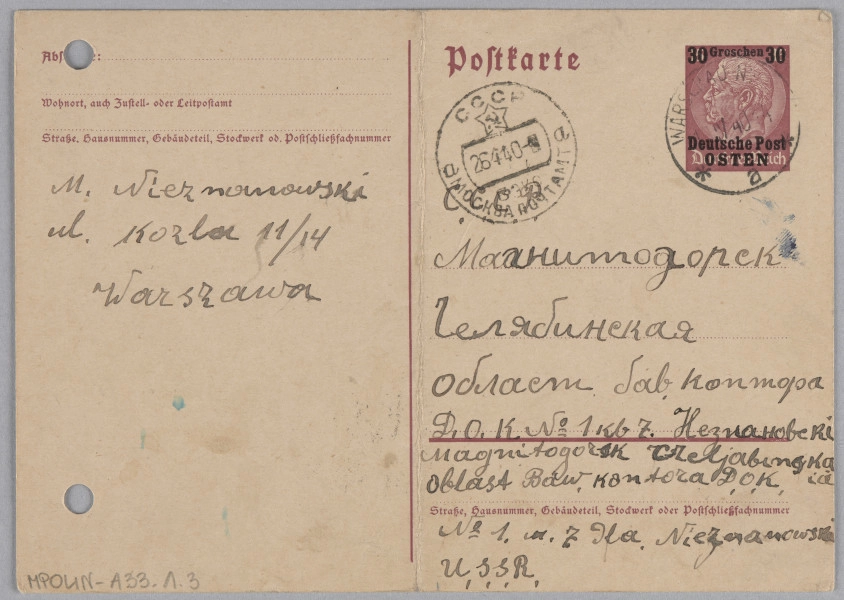 Postkarte
30 Groschen 30
Deutsche Post
OSTEN
CCCP
26 4 40
МОСКВА ПОЧТАМТ
Wohnort, auch Zustell- oder Leitpostamt
Straße, Hausnummer, Gebäudeteil, Stockwerk od. Postschließfachnummer
M. Nieznanowski
ul. Kozla 11/14
Warszawa
MPOLIN-A33.1.3
Магнитогорск
Челябинская
област. бав. контора
Д.О.К № 1 кв 7. Незнановски
Magnitogorsk Czeljabinskaia
oblast Baw. kontora D.O.K.
Straße, Hausnummer, Gebäudeteil, Stockwerk oder Postschließfachnummer
№ 1. m. 7 Nieznanowski
U.S.S.R.